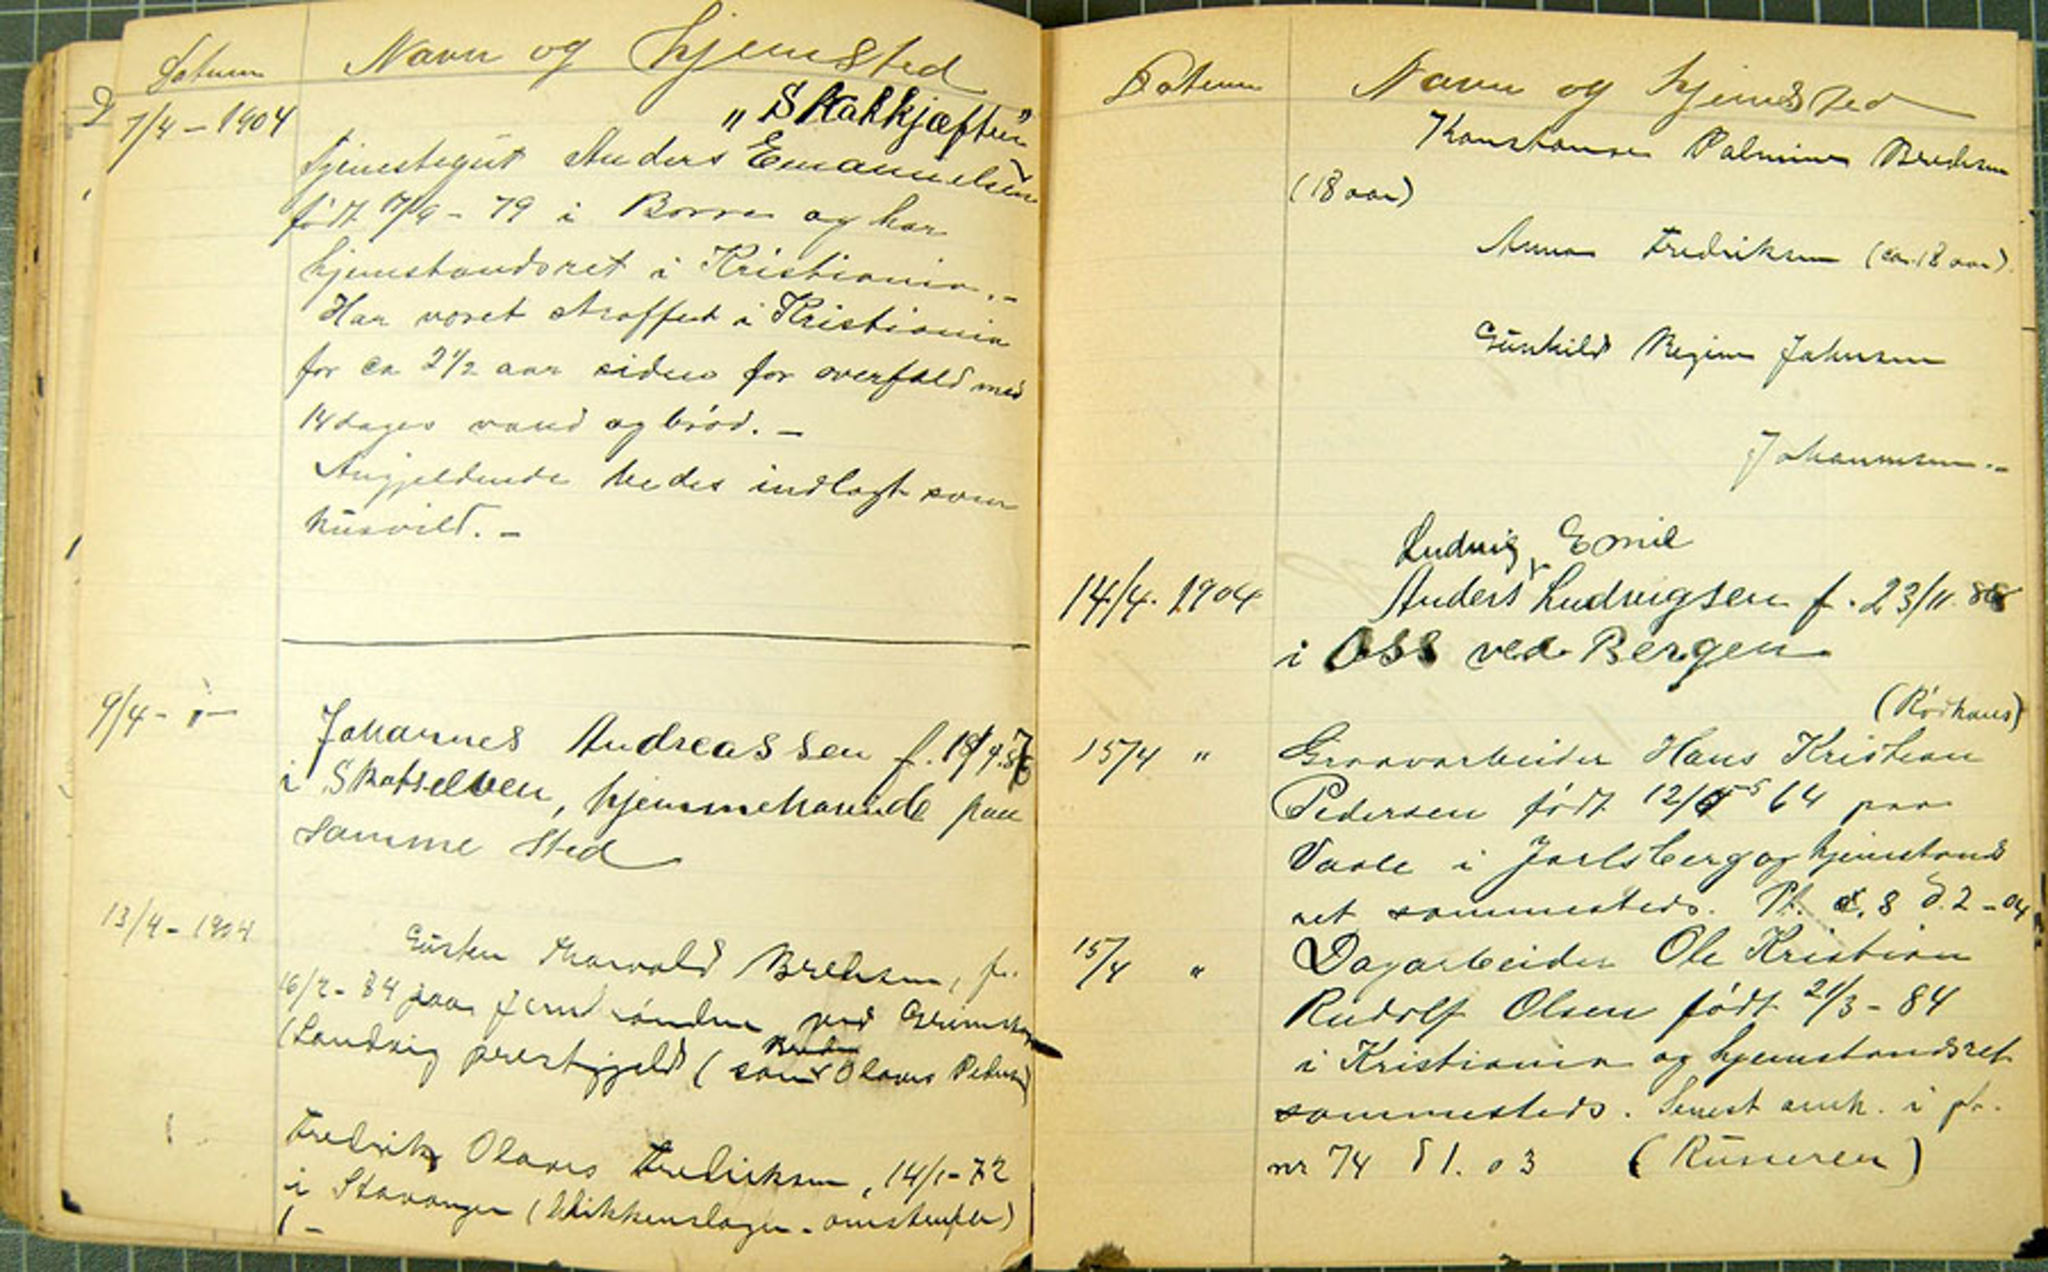 Datum
Navn og hjemsted
7/4 - 1904
„Skakkjæften"
Tjenestegut Anders Emanuelsen
født 17/9 - 79 i Borre og har
hjemstandsret i Kristiania. -
Har været straffet i Kristiania
for ca 2 1/2 aar siden for overfald med
14 dages vand og brød. -
Angjeldende bedes indlagt som
husvild. -
9/4 - " -
Johannes Andreassen f.
i Skotselven, hjemmehørende paa
samme Sted
13/4 - 1904
Gusten Thorvald Bredesen, f.
16/2 - 84 paa ved Grimstad
(Landvig prestegjeld (som Olaves Pedersen)
Fredrik Olaves Fredriksen, 14/1 - 72
i Stavanger (Blikkenslager - omstreifer)
( -
Datum
Navn og hjemsted
Konstanse Palmine Bredesen
(18 aar)
Anna Fredriksen (ca. 18 aar).
Gunhild Regine Johnsen
Johannesen. -
Ludvig Emil
14/4. 1904
Anders Ludvigsen f. 23/11. 88
i Oss ved Bergen
(Rødhans)
15/4 "
Gravarbeider Hans Kristian
Pedersen født 12/5 64 paa
Vaale i Jarlsberg og hjemstands
ret sammesteds. Pt. 8 d. 2 - 04
15/4 "
Dagarbeider Ole Kristian
Rudolf Olsen født 21/3 - 84
i Kristiania og hjemstandsret
sammesteds. Senest anh. i pr.
nr 74 d 1. 03 (Russeren)